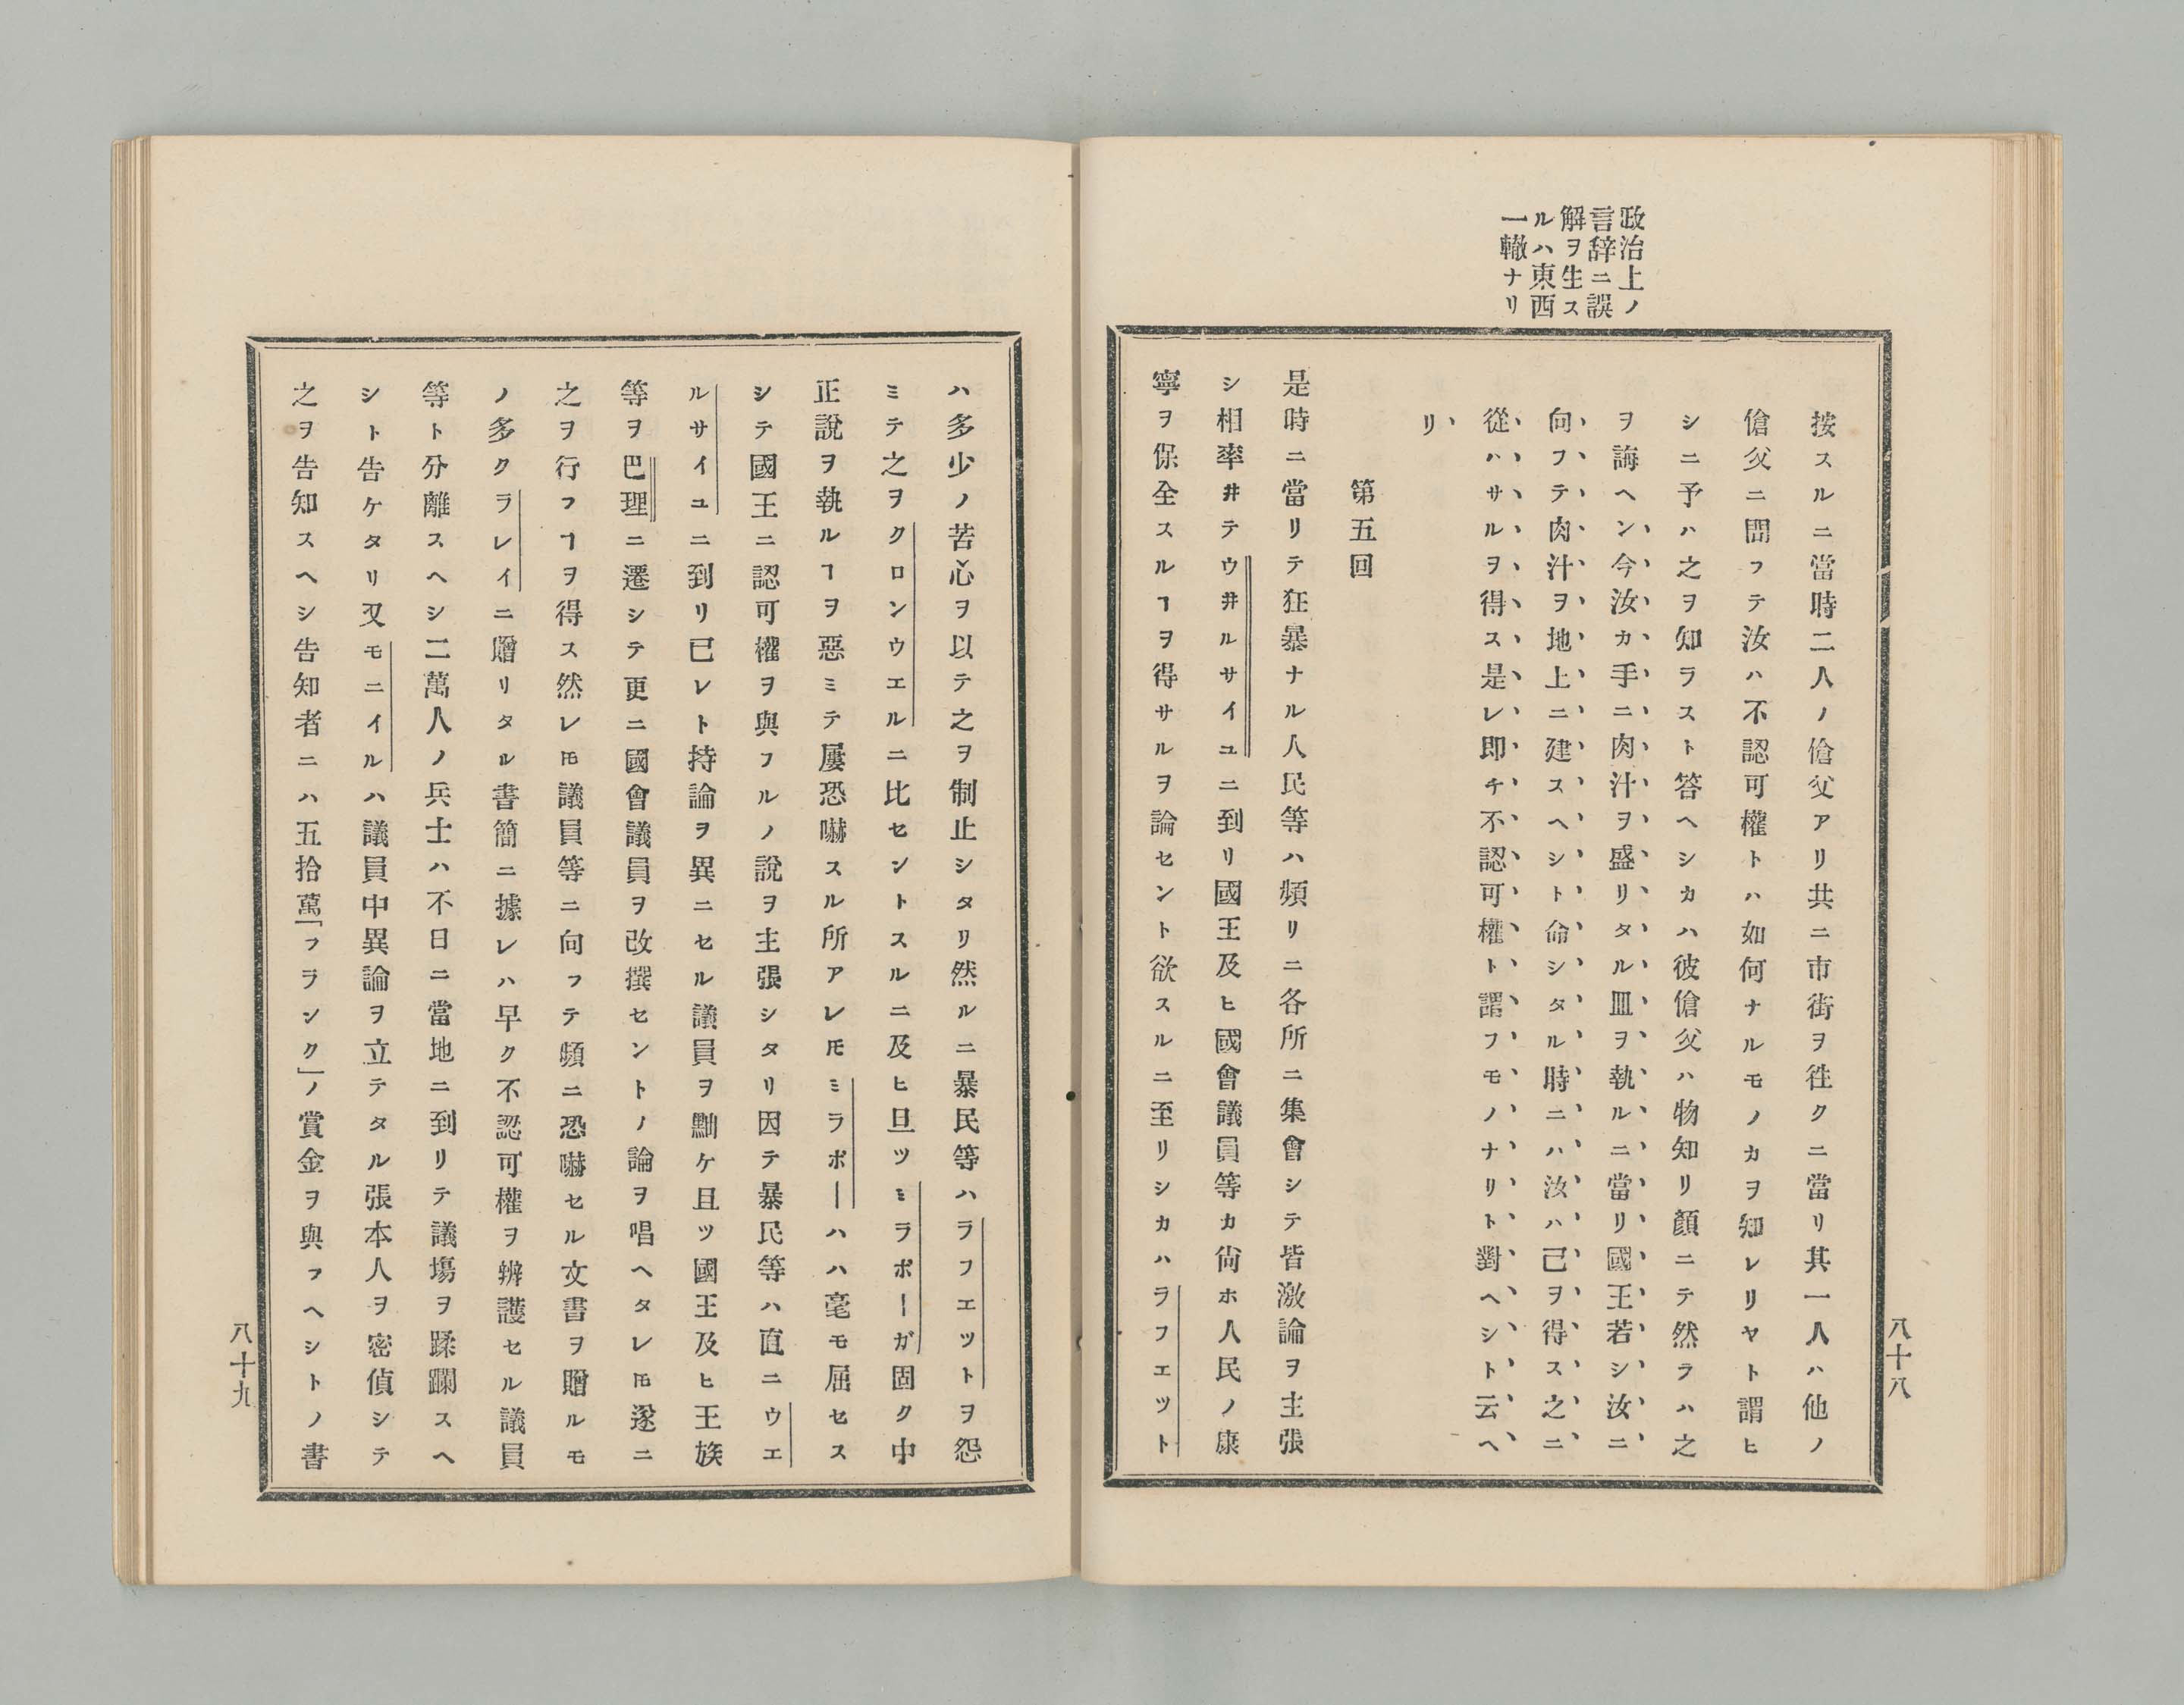 政治上ノ
言辞ニ誤
解ヲ生ス
ルハ東西
一轍ナリ
按スルニ當時二人ノ傖父アリ共ニ市街ヲ徃クニ當リ其一人ハ他ノ
傖父ニ問フテ汝ハ不認可權トハ如何ナルモノカヲ知レリヤト謂ヒ
シニ予ハ之ヲ知ラスト答ヘシカハ彼傖父ハ物知リ顏ニテ然ラハ之
ヲ誨ヘン今汝カ手ニ肉汁ヲ盛リタル皿ヲ執ルニ當リ國王若シ汝ニ
向フテ肉汁ヲ地上ニ建スヘシト命シタル時ニハ汝ハ己ヲ得ス之ニ
從ハサルヲ得ス是レ即チ不認可權ト謂フモノナリト對ヘシト云ヘ
リ
第五回
是時ニ當リテ狂暴ナル人民等ハ頻リニ各所ニ集會シテ皆激論ヲ主張
シ相率井テウ井ルサイユニ到リ國王及ヒ國會議員等カ尙ホ人民ノ康
寧ヲ保全スルヿヲ得サルヲ論セント欲スルニ至リシカハラフエツト
八十八
ハ多少ノ苦心ヲ以テ之ヲ制止シタリ然ルニ暴民等ハラフエツトヲ怨
ミテ之ヲクロンウエルニ比セントスルニ及ヒ旦ツミラボーガ固ク中
正說ヲ執ルヿヲ惡ミテ屢恐嚇スル所アレ𪜈ミラボーハハ毫モ屈セス
シテ國王ニ認可權ヲ與フルノ說ヲ主張シタリ因テ暴民等ハ直ニウエ
ルサイユニ到リ已レト持論ヲ異ニセル議員ヲ黜ケ且ツ國王及ヒ王族
等ヲ巴理ニ遷シテ更ニ國會議員ヲ改撰セントノ論ヲ唱ヘタレ𪜈遂ニ
之ヲ行フヿヲ得ス然レ𪜈議員等ニ向フテ頻ニ恐嚇セル文書ヲ贈ルモ
ノ多クラレイニ贈リタル書簡ニ據レハ早ク不認可權ヲ辨護セル議員
等ト分離スヘシ二萬人ノ兵士ハ不日ニ當地ニ到リテ議塲ヲ蹂躙スヘ
シト告ケタリ又モニイルハ議員中異論ヲ立テタル張本人ヲ密偵シテ
之ヲ告知スヘシ告知者ニハ五拾萬「フランク」ノ賞金ヲ與フヘシトノ書
八十九